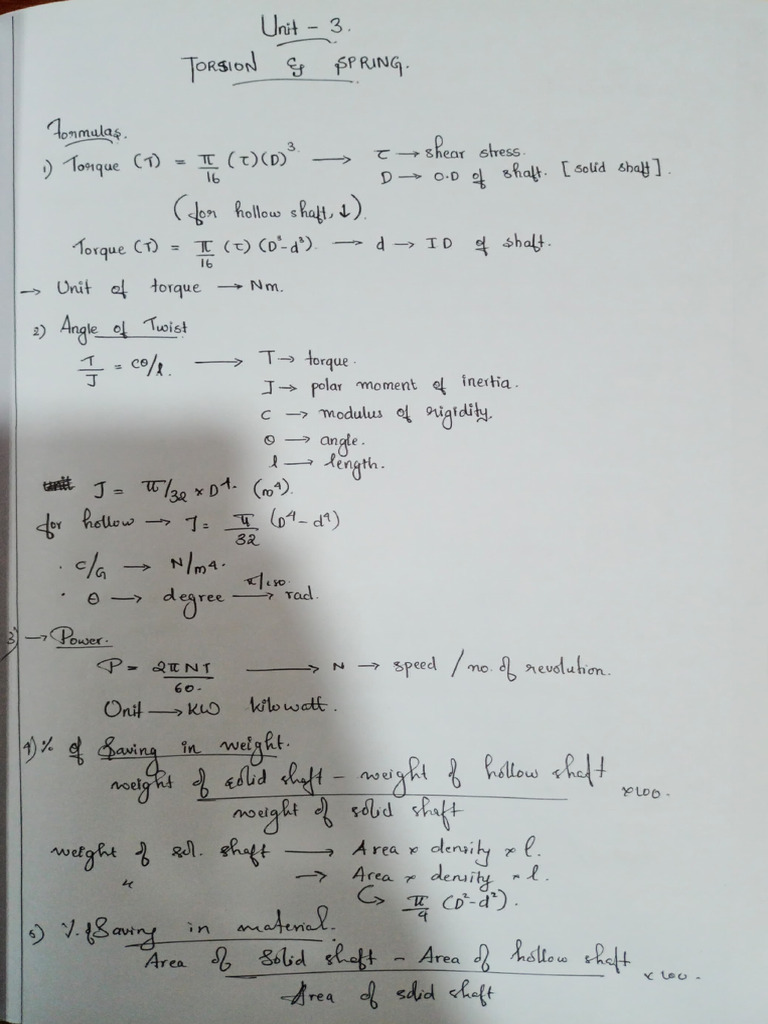 Unit - 3.
TORSION & SPRING.
Formulas.
1) Torque (T) = π/16 (τ)(D)³ → τ → shear stress.
D → O.D of shaft. [solid shaft].
(for hollow shaft, ↓).
Torque (T) = π/16 (τ) (D³-d³). → d → ID of shaft.
→ Unit of torque → Nm.
2) Angle of Twist
T/J = cθ/l. → T → torque.
J → polar moment of inertia.
C → modulus of rigidity.
θ → angle.
l → length.
J = π/32 × D⁴. (m⁴).
for hollow → J = π/32 (D⁴ - d⁴)
. C/G → N/m⁴.
. θ → degree →π/180. rad.
3) → Power.
P = 2πNT/60. → N → speed / no. of revolution.
Unit → KW kilowatt.
4) % of Saving in weight.
weight of solid shaft - weight of hollow shaft
×100.
weight of solid shaft
weight of sol. shaft → Area × density × l.
" → Area × density × l.
↳ π/4 (D²-d²).
5) %. of Saving in material.
Area of Solid shaft - Area of hollow shaft
×100.
Area of solid shaft